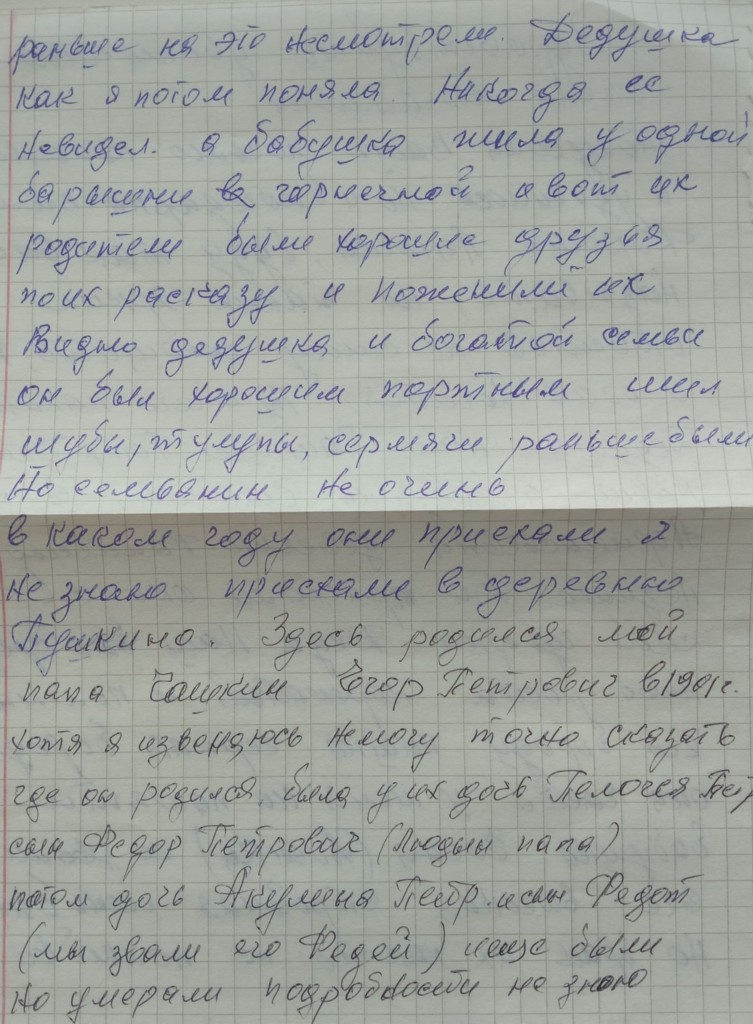 раньше на это несмотрели. Дедушка
как я потом поняла Никогда ее
невидел. а бабушка жила у одной
барышни в горнечной а вот их
родители были хорошие друзья
по их расказу и поженили их
Видно дедушка и богатой семьи
он был хорошим портным шил
шубы, тулупы, сермяги раньше были
Но семьянин не очинь
в каком году они приехали я
не знаю приехали в деревню
Пушкино. Здесь родился мой
папа Чашкин Егор Петрович в 1901г.
хотя я извеняюсь немогу точно сказать
где он родился была у их дочь Пелогея Петр
сын Федор Петрович (Людын папа)
потом дочь Акулина Петр. и сын Федот
(мы звали его Федей) и еще были
Но умерали подробности не знаю